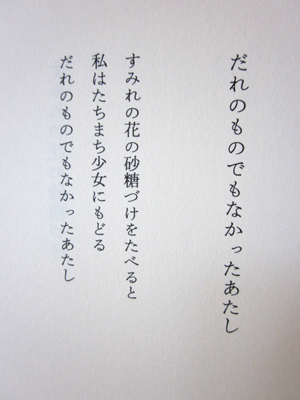 だれのものでもなかったあたし
すみれの花の砂糖づけをたべると
私はたちまち少女にもどる
だれのものでもなかったあたし